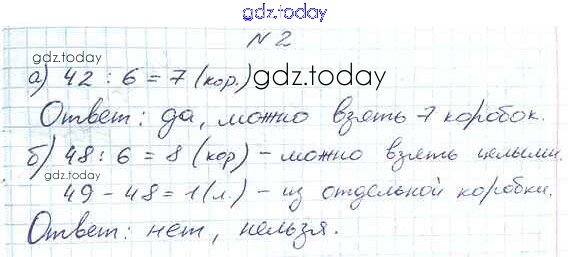 gdz.today
N 2
gdz.today
а) 42 : 6 = 7 (кор.) gdz.today
Ответ: да, можно взять 7 коробок.
б) 48 : 6 = 8 (кор) – можно взять целыми.
gdz.today
49 – 48 = 1 (л.) – из отдельной коробки.
Ответ: нет, нельзя.